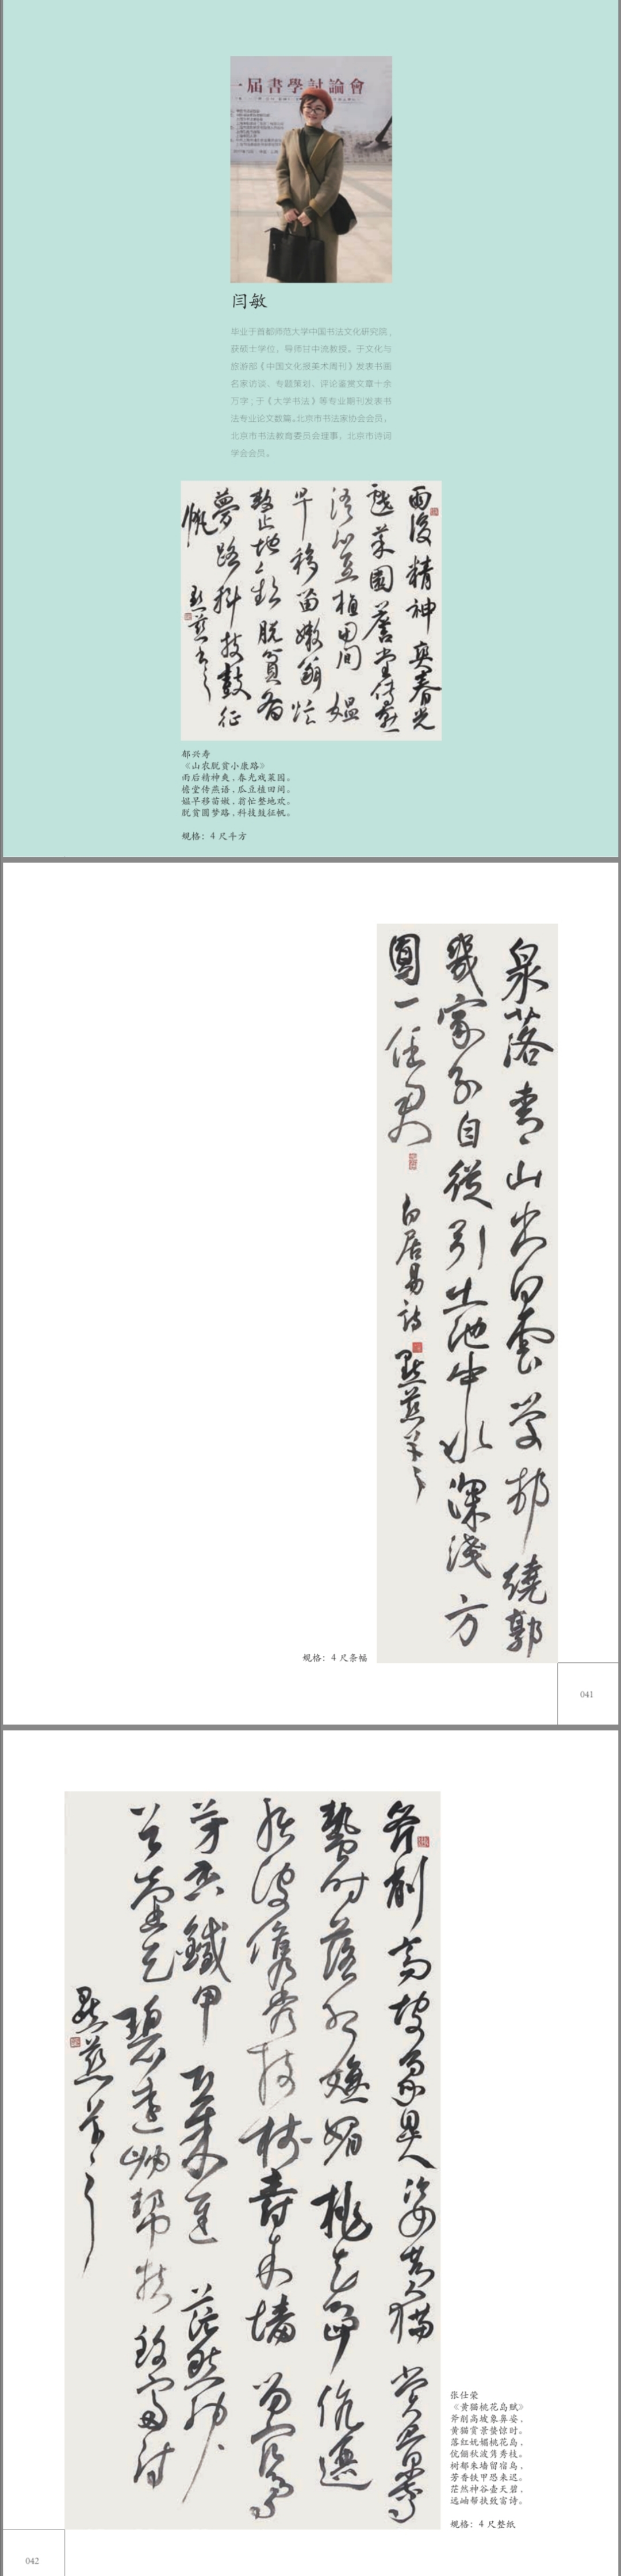 一届書學討論會
闫敏
毕业于首都师范大学中国书法文化研究院，
获硕士学位，导师甘中流教授。于文化与
旅游部《中国文化报美术周刊》发表书画
名家访谈、专题策划、评论鉴赏文章十余
万字；于《大学书法》等专业期刊发表书
法专业论文数篇。北京市书法家协会会员，
北京市书法教育委员会理事，北京市诗词
学会会员。
雨後精神爽春光
戲菜園簷堂傳燕
語瓜豆植田間媪
早移苗嫩翁忙
整地歡脱貧圓
夢路科技鼓征
帆
郗兴寿
《山农脱贫小康路》
雨后精神爽，春光戏菜园。
檐堂传燕语，瓜豆植田间。
媪早移苗嫩，翁忙整地欢。
脱贫圆梦路，科技鼓征帆。
规格：4 尺斗方
泉落青山出白雲縈村繞郭
幾家分自從引作池中水深淺方
圓一任君
白居易詩
规格：4 尺条幅
041
斧削高坡象鼻姿黄猫賞景鶯
蟄时落紅嫵媚桃花島優儷
秋波雋秀枝樹郁朱墙留宿鳥
芳香鐵甲恐来遲茫然神
谷壷天碧遠岫帮扶致富诗
张仕荣
《黄猫桃花岛赋》
斧削高坡象鼻姿，
黄猫赏景蟄惊时。
落红妩媚桃花岛，
优俪秋波隽秀枝。
树郁朱墙留宿鸟，
芳香铁甲恐来迟。
茫然神谷壶天碧，
远岫帮扶致富诗。
规格：4 尺整纸
042